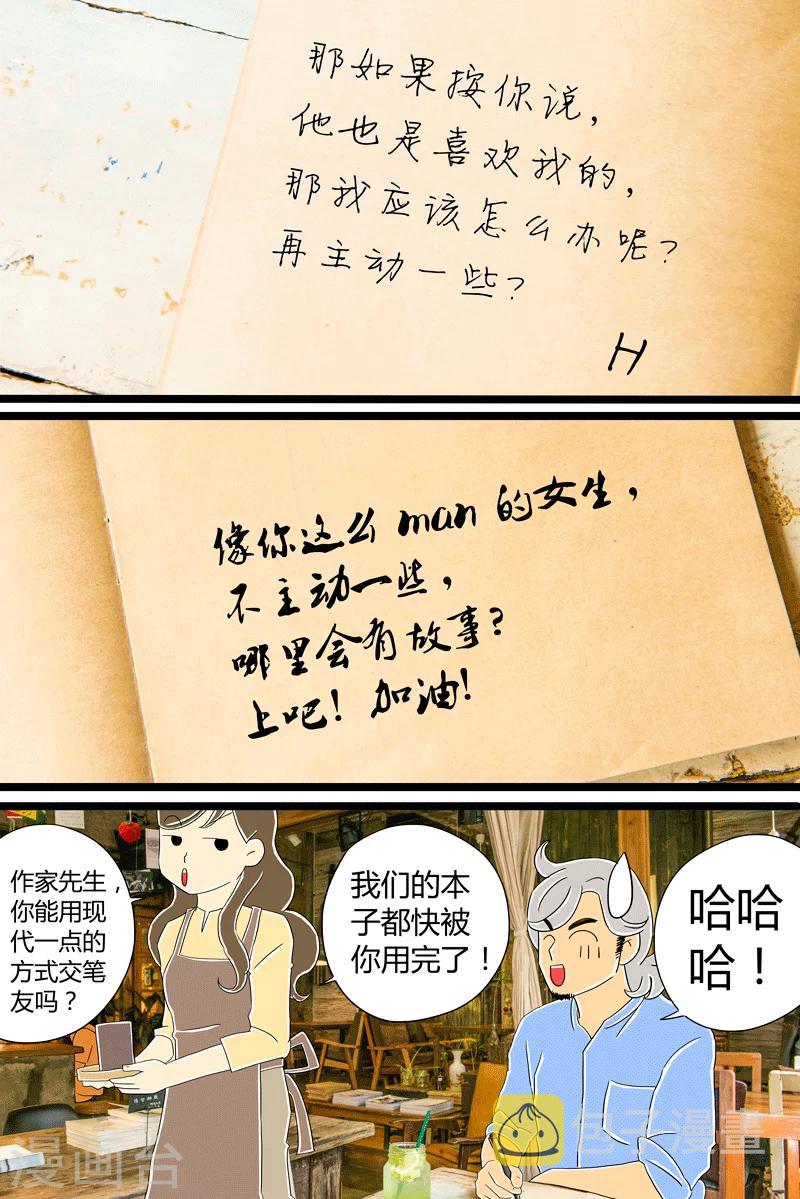 那如果按你说，
他也是喜欢我的，
那我应该怎么办呢？
再主动一些？
H
像你这么 man 的女生，
不主动一些，
哪里会有故事？
上吧！加油！
作家先生，
你能用现
代一点的
方式交笔
友吗？
我们的本
子都快被
你用完了！
哈哈
哈！
包子漫畫
漫画台